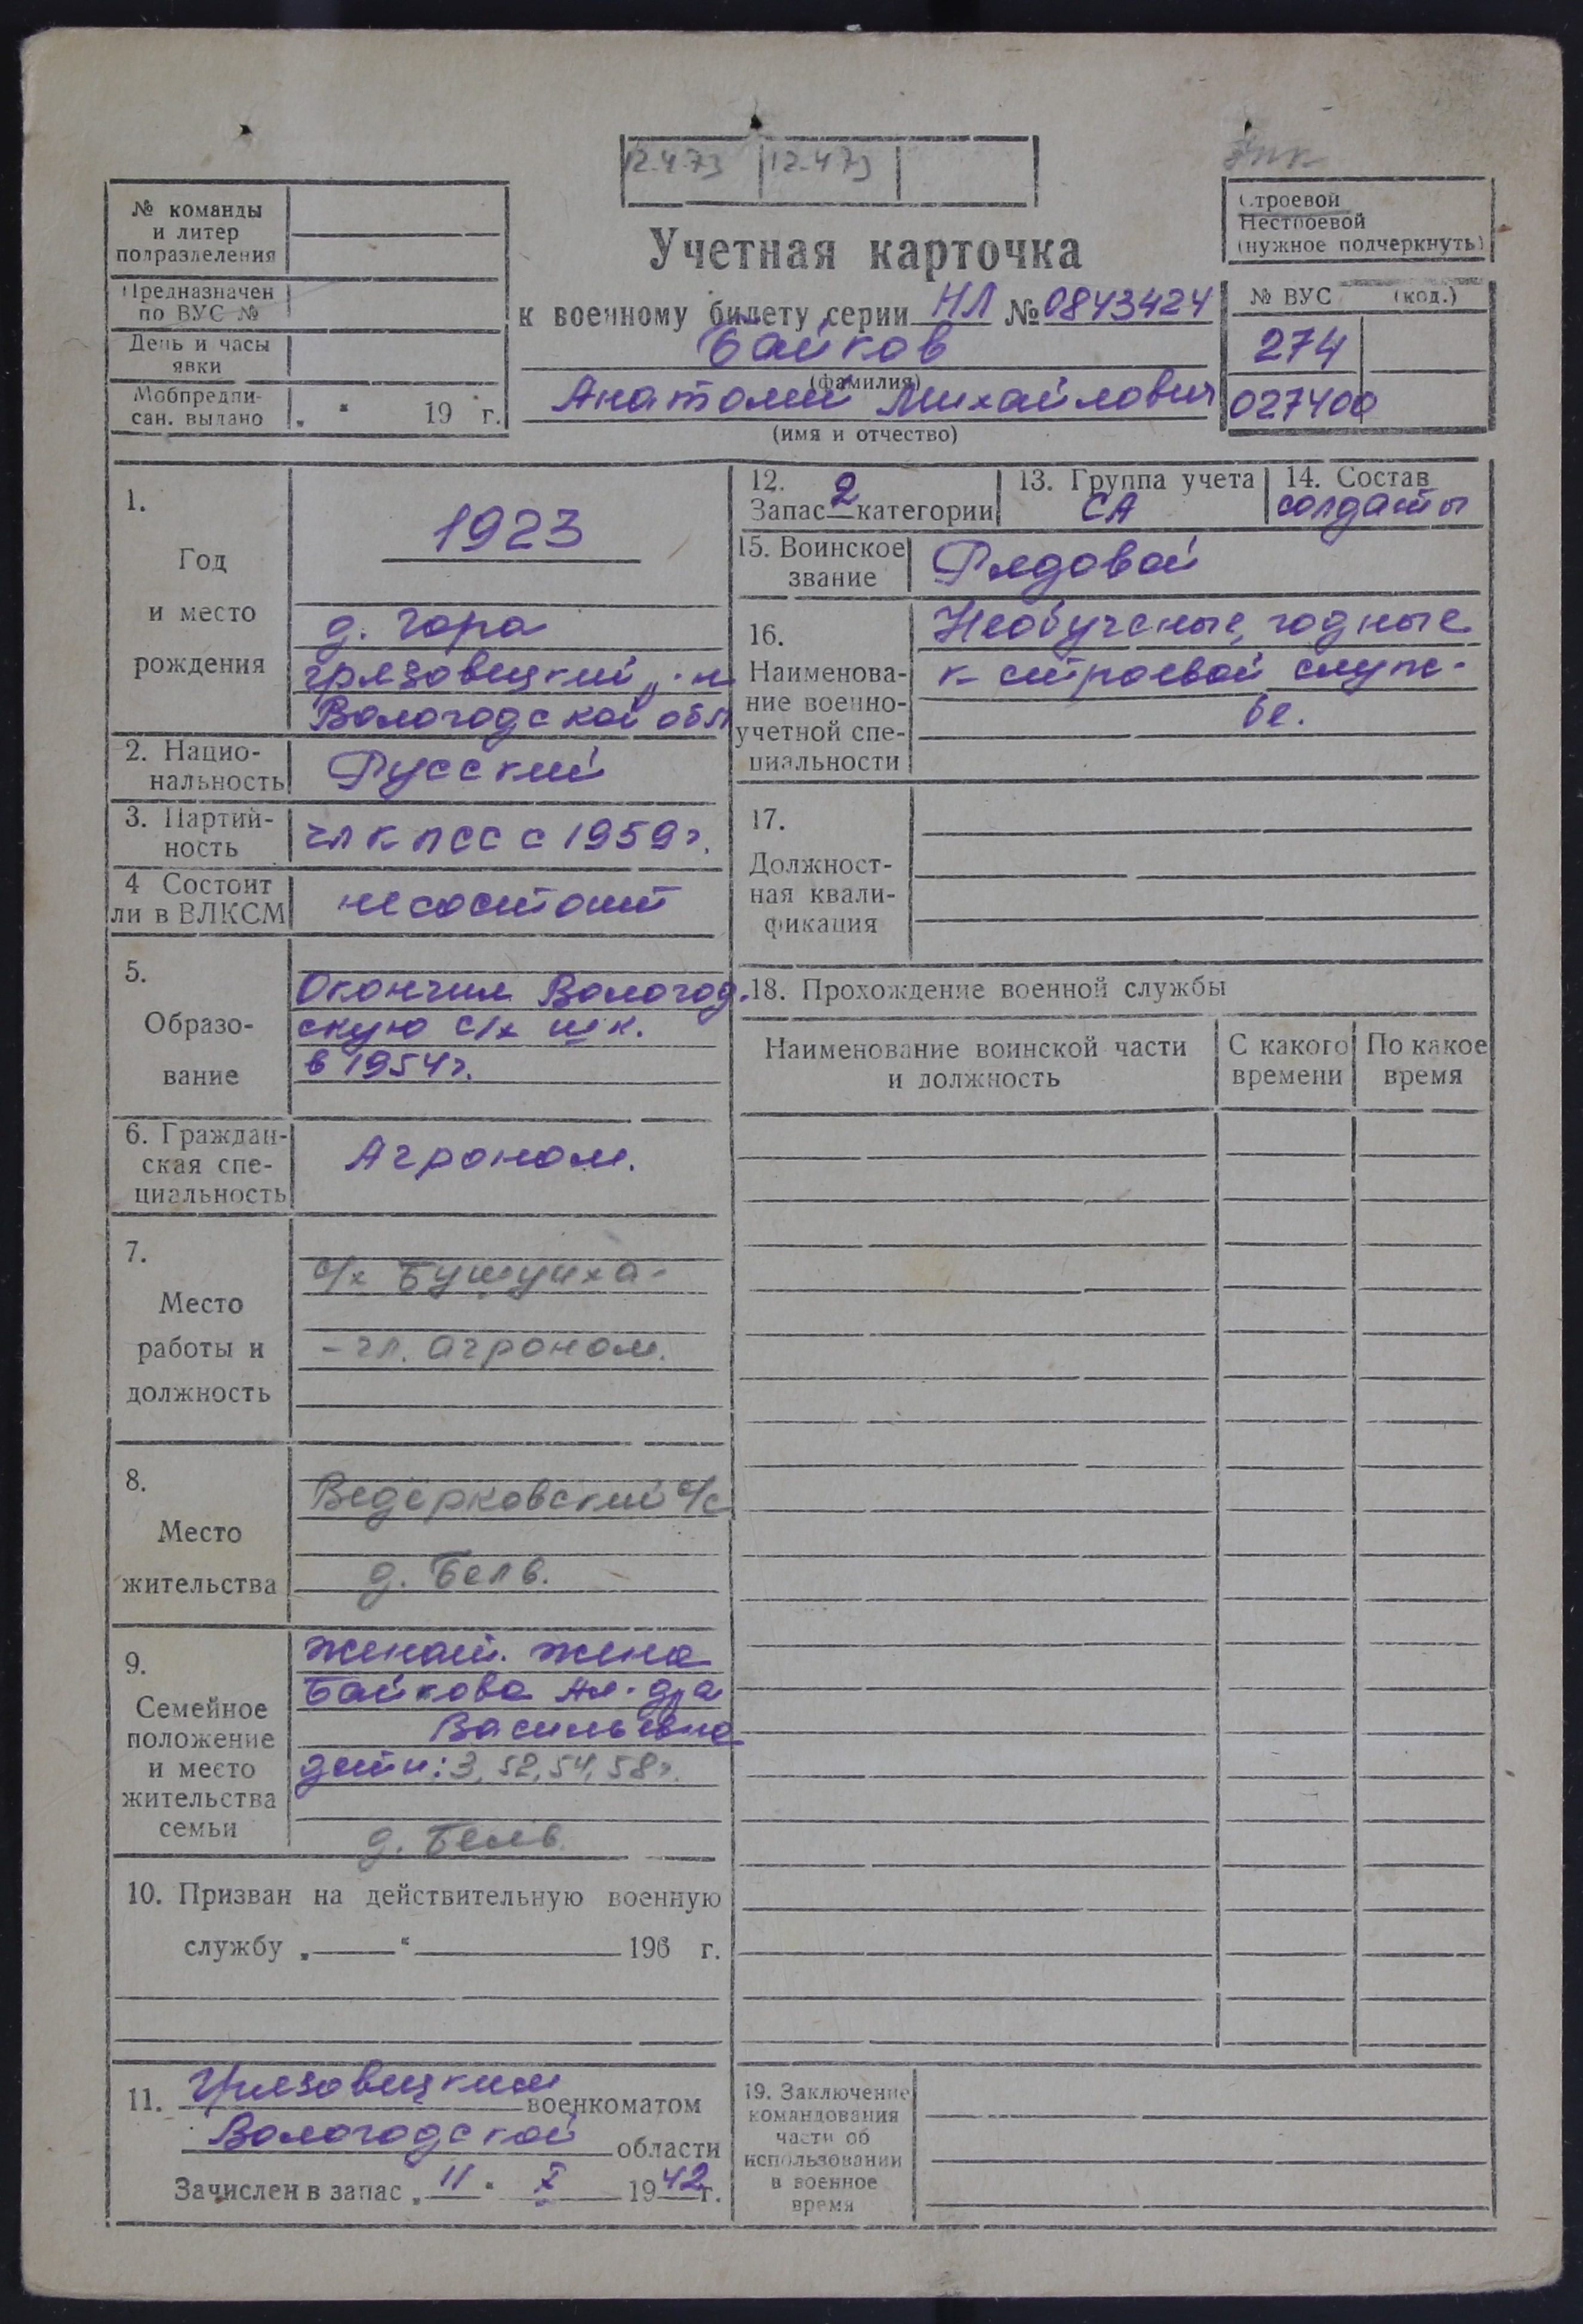 12.4.73 12.4.73
№ команды
и литер
подразделения
Предназначен
по ВУС №
День и часы
явки
Мобпредпи-
сан. выдано „ “ 19 г.
Учетная карточка
к военному билету серии НЛ № 0843424
Байков
(фамилия)
Анатолий Михайлович
(имя и отчество)
Строевой
Нестроевой
(нужное подчеркнуть)
№ ВУС (код.)
274
027400
1.
Год
и место
рождения
1923
д. Гора
Грязовецкий р-н
Вологодской обл
2. Нацио-
нальность
Русский
3. Партий-
ность
чл КПСС с 1959г.
4 Состоит
ли в ВЛКСМ
не состоит
5.
Образо-
вание
Окончил Вологод.
скую с/х шк.
в 1954г.
6. Граждан-
ская спе-
циальность
Агроном.
7.
Место
работы и
должность
с/х Бушуиха-
- гл. агроном.
8.
Место
жительства
Ведерковский с/с
д. Бель.
9.
Семейное
положение
и место
жительства
семьи
женат. жена
Байкова Ал-дра
Васильевна
дети: 3, 52, 54, 58г.
д. Бель
10. Призван на действительную военную
службу „ “ 196 г.
11. Грязовецким военкоматом
Вологодской области
Зачислен в запас „11“ X 1942г.
12.
Запас 2 категории
13. Группа учета
СА
14. Состав
солдаты
15. Воинское
звание
Рядовой
16.
Наименова-
ние военно-
учетной спе-
циальности
Необученные, годные
к строевой служ-
бе.
17.
Должност-
ная квали-
фикация
18. Прохождение военной службы
Наименование воинской части
и должность
С какого
времени
По какое
время
19. Заключение
командования
части об
использовании
в военное
время